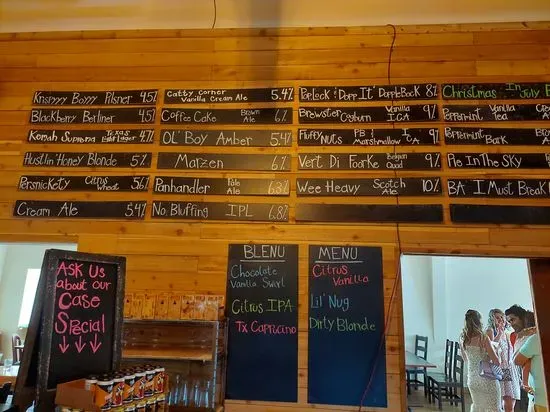 Krispyyy Boyyy Pilsner 4.5%
Blackberry Berliner 4.5%
Kemah Suprema Texas Light Lager 4.5%
Hustlin Honey Blonde 5%
Persnickety Citrus Wheat 5%
Cream Ale 5.4%
Catty Corner Vanilla Cream Ale 5.4%
Coffee Cake Brown Ale 6%
OL' Boy Amber 5.4%
Marzen 6%
Panhandler Pale Ale 6.3%
No Bluffing IPL 6.8%
PopLock & Dopp It' DoppleBock 8%
Brewster Coburn Vanilla ICA 9%
Fluffy Nuts PB & Marshmallow 9%
Vert Di Foorke Belgian Quad 9%
Wee Heavy Scotch Ale 10%
Christmas In July
Peppermint Vanilla
Peppermint Bark
Pie In The Sky
BA I Must Break
BLEND
Chocolate
Vanilla Swirl
Citrus IPA
Tx Cappucino
MENU
Citrus
Vanilla
Lil' Nug
Dirty Blonde
Ask Us
about our
Case
Special